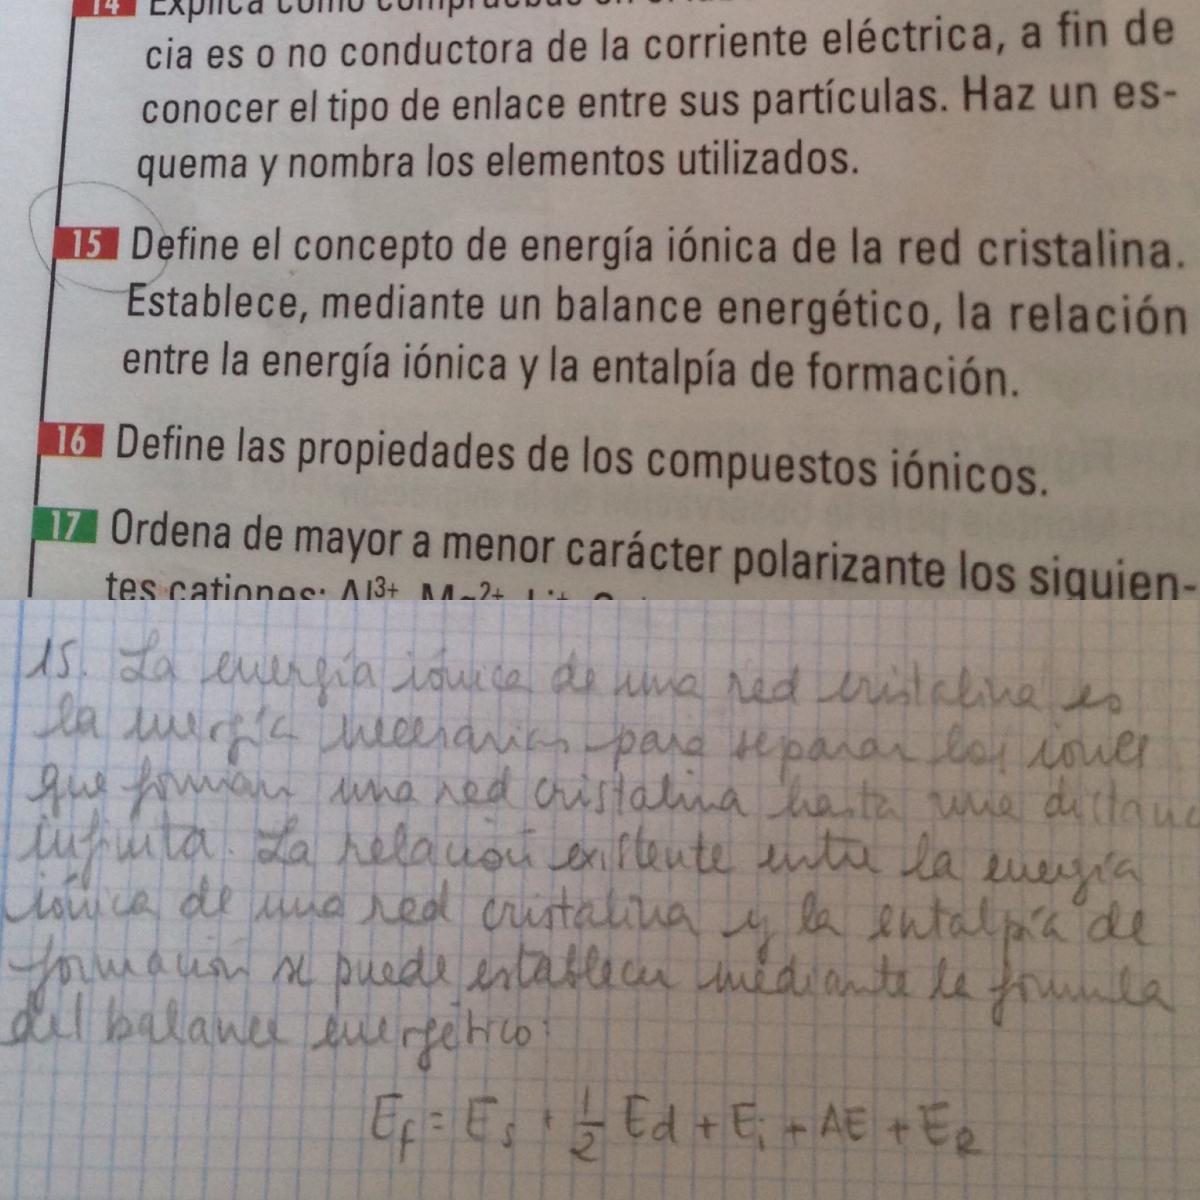 14 Explica cómo compruebas en el
cia es o no conductora de la corriente eléctrica, a fin de
conocer el tipo de enlace entre sus partículas. Haz un es-
quema y nombra los elementos utilizados.
15 Define el concepto de energía iónica de la red cristalina.
Establece, mediante un balance energético, la relación
entre la energía iónica y la entalpía de formación.
16 Define las propiedades de los compuestos iónicos.
17 Ordena de mayor a menor carácter polarizante los siguien-
tes cationes: Al³⁺, Mg²⁺, Li⁺,
15. La energía iónica de una red cristalina es
la energía necesaria para separar los iones
que forman una red cristalina hasta una distanc
infinita. La relación existente entre la energía
iónica de una red cristalina y la entalpía de
formación se puede establecer mediante la fórmula
del balance energético:
E_f = E_s + 1/2 Ed + E_i + AE + E_R